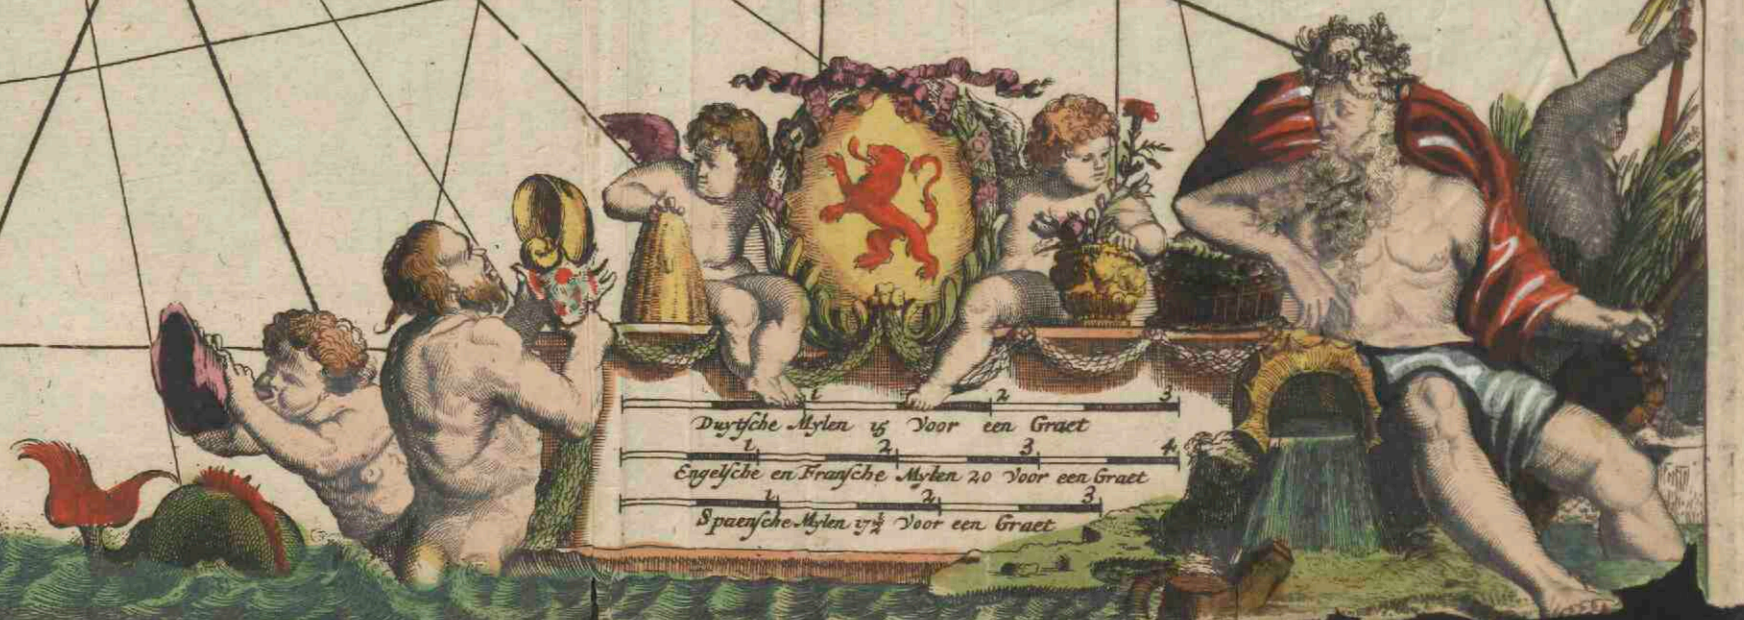 1 2 3
Duytsche Mylen 15 voor een Graet
1 2 3 4
Engelsche en Fransche Mylen 20 voor een Graet
1 2 3
Spaensche Mylen 17½ voor een Graet